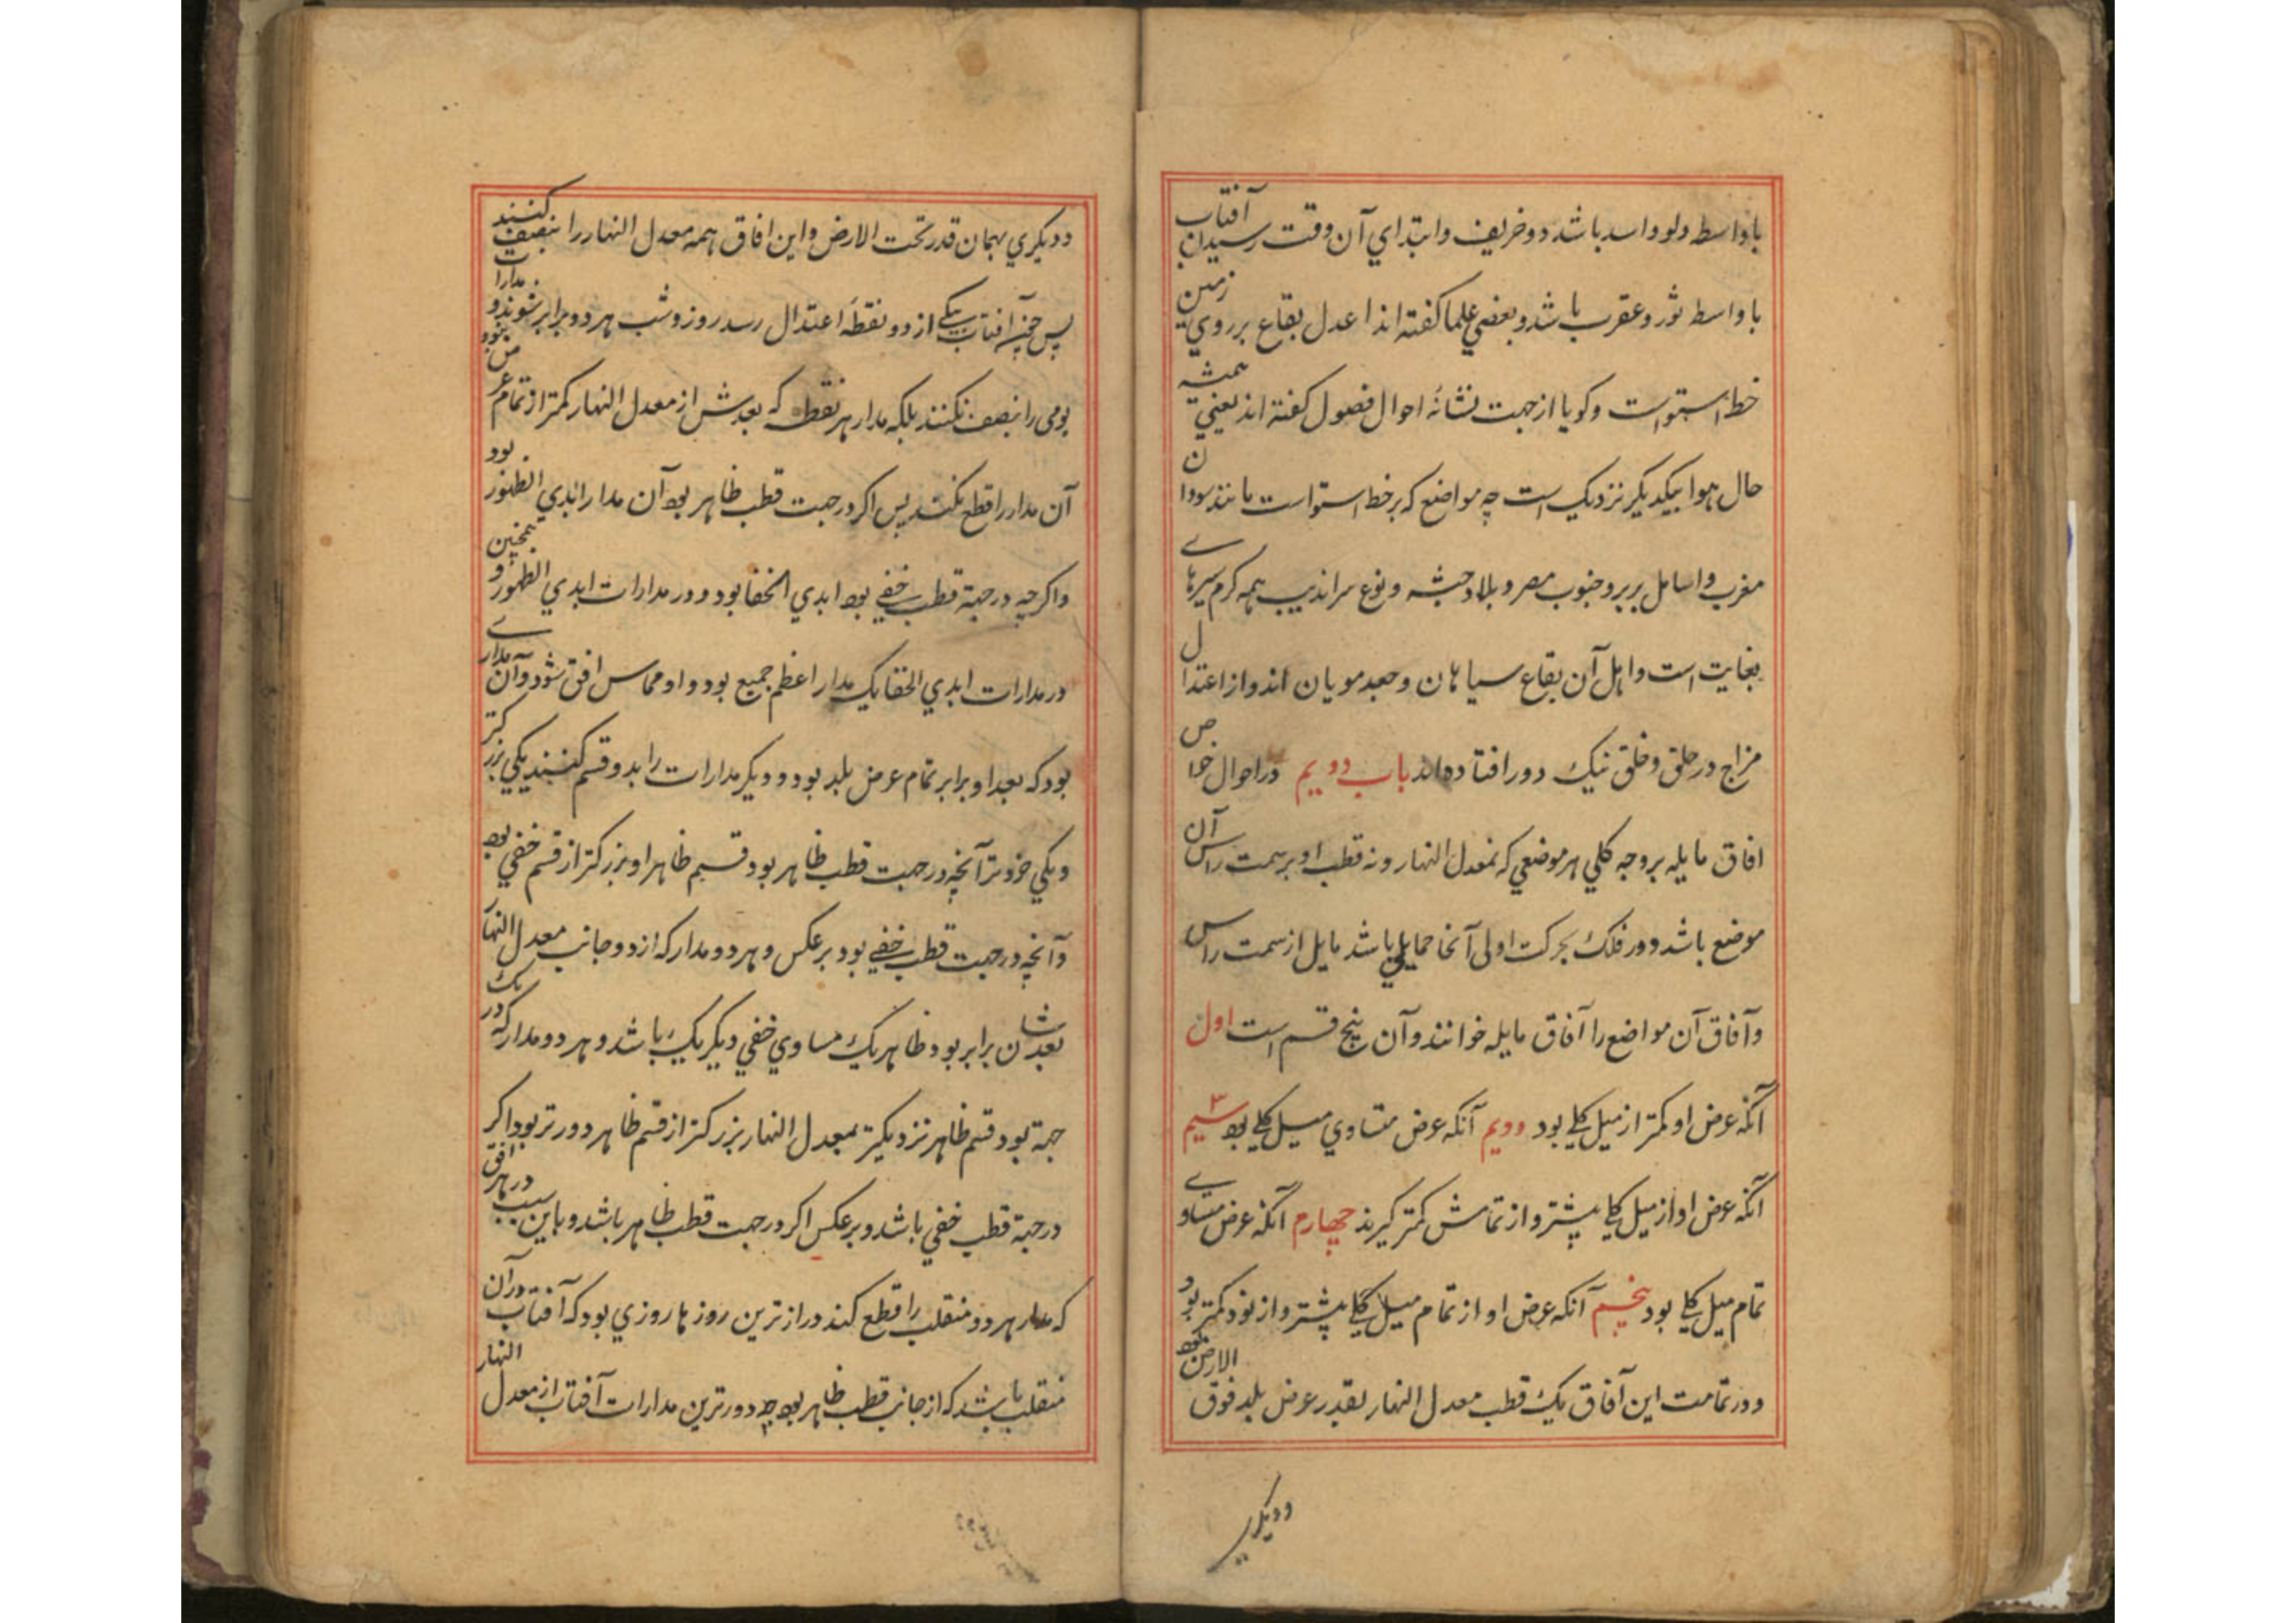 باواسط دلو و اسد باشد و خریف و ابتدای آن وقت رسیدن آفتاب
باواسط ثور و عقرب باشد و بعضي علما کفته اند اعدل بقاع بر روي زمین
خط استواست و کویا از جهت تشابه احوال فصول کفته اند یعني همیشه
حال هوا بیکدیکر نزدیک است چه مواضع که بر خط استواست مانند سودان
مغرب و اسافل بربر و جنوب مصر و بلاد حبشه و نوع سراندیب همه کرم سیرهاے
بغایت است و اهل آن بقاع سیاهان و جعد مویان اند و از اعتدال
مزاج در خلق و خلق نیک دور افتاده اند باب دویم در احوال خواص
افاق مایله بر وجه کلي هر موضعي که نه معدل النهار و نه قطب او بر سمت راس آن
موضع باشد دور فلک بحرکت اولی آنجا حمایلي باشد مایل از سمت راس
و آفاق آن مواضع را آفاق مایله خوانند و آن پنج قسم است اول
آنکه عرض او کمتر از میل کلے بود دویم آنکه عرض متساوي میل کلے بود سیم ۳
آنکه عرض او از میل کلے بیشتر و از تمامش کمتر کیرند چهارم آنکه عرض مساوے
تمام میل کلے بود پنجیم آنکه عرض او از تمام میل کلے بیشتر و از نود کمتر بود
و در تمامت این آفاق یک قطب معدل النهار بقدر عرض بلد فوق الارض بود
ودیکري
ودیکري بهمان قدر تحت الارض و این افاق همه معدل النهار را بنصف کنند
پس چون آفتاب بیکے از دو نقطه اعتدال رسد روز و شب هر دو برابر شوند و مدارات
یومی را بنصف نکنند بلکه مدار هر نقطه که بعدش از معدل النهار کمتر از تمام عرض بود
آن مدار را قطع نکند پس اکر در جهت قطب ظاهر بود آن مدار ابدي الظهور بود
و اکرچه در جهة قطب خفي بود ابدي الخفا بود و در مدارات ابدي الظهور و همچنین
در مدارات ابدي الخفا یک مدار اعظم جمیع بود و او مماس افق شود و آن مدارے
بود که بعد او برابر تمام عرض بلد بود و دیکر مدارات را بدو قسم کنند یکي بزرکتر
و یکي خردتر آنچه در جهت قطب ظاهر بود قسم ظاهر او بزرکتر از قسم خفي بود
و آنچه در جهت قطب خفي بود بر عکس و هر دو مدار که از دو جانب معدل النهار
بعدشان برابر بود ظاهر یک مساوي خفي دیکر یک باشد و هر دو مدار که در یک
جهة بود قسم ظاهر نزدیکتر بمعدل النهار بزرکتر از قسم ظاهر دورتر بود اکر
در جهة قطب خفي باشد و بر عکس اکر در جهت قطب ظاهر باشد و باین سبب در هر افق
که مدار هر دو منقلب را قطع کند درازترین روزها روزي بود که آفتاب در آن
منقلب باشد که از جانب قطب ظاهر بود چه دورترین مدارات آفتاب از معدل النهار